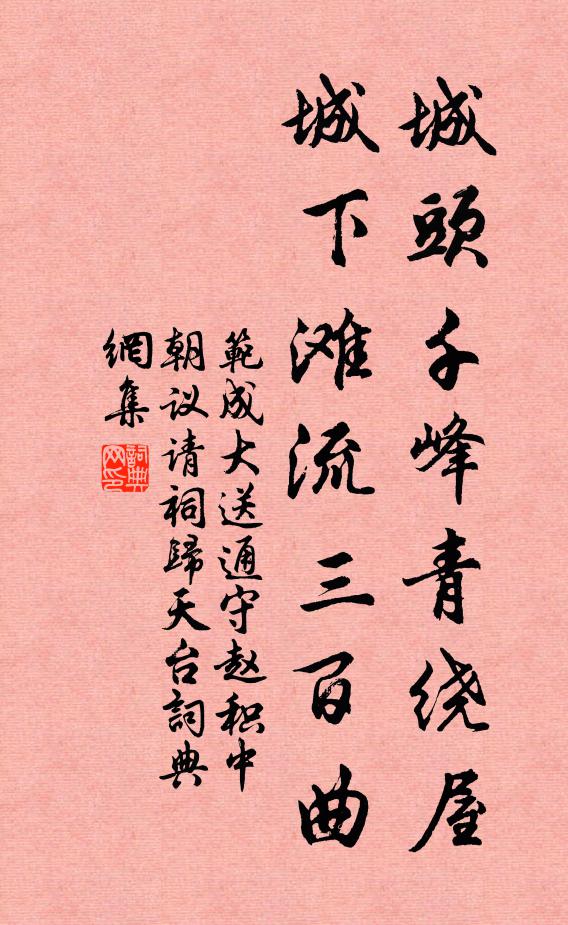 城頭千峰青绕屋
城下滩流三百曲
範成大送通守赵积中
朝议请祠歸天台詞典
網集
詞典
网印